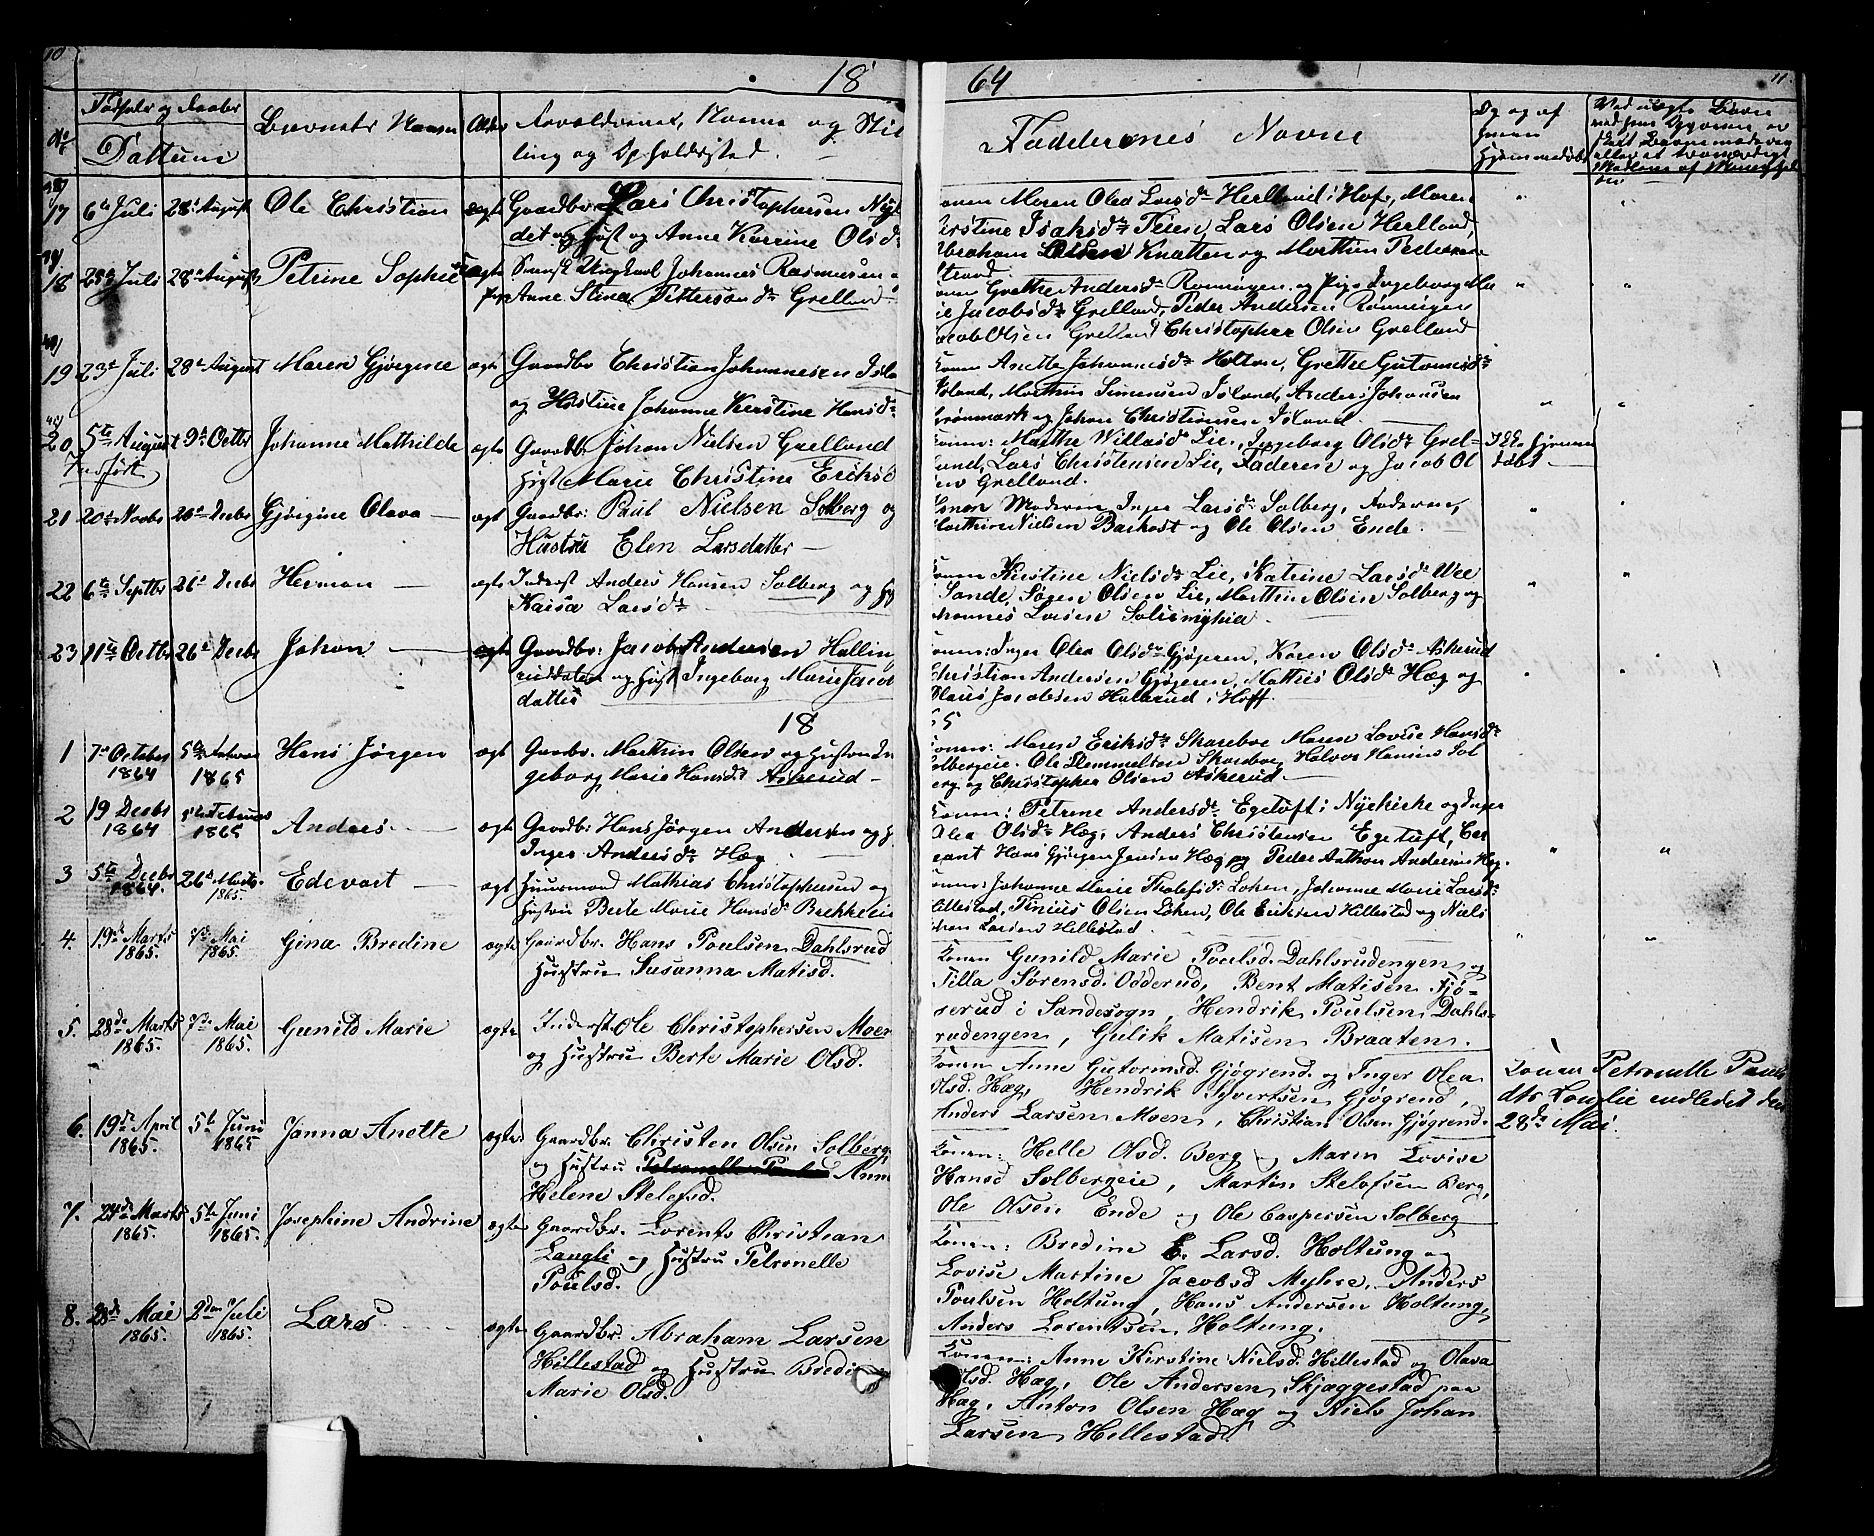 10
18
No
Fødsels og Daabs
Dattum
Barnets Navn
og Stil
ling og Opholdssted.
17 6te Juli 28de August Ole Christian ægte Gaardbr. Lars Christophersen
det og Hust og Anne Karrine Olsd.
18 Juli 28de August Petrine Sophie ægte Svensk Ungkarl Johannes Rasmusen
Pige Anne Stina Pettersen d. Grelland
19 23de Juli 28de August Maren Gjørgine ægte Gaardbr Christian Johannesen
og Hustrue Johanne Kerstine Hansd.
20 5te August 9de Octbr Johanne Mathilde ægte Gaardbr Johan Nielsen Grelland
Indført
Hust Marie Christine Eriksd
21 20de Novbr 26de Decbr Gjørgine Olava ægt Gaardbr: Paul Nielsen Solberg og
Hustru Elen Larsdatter
22 6te Septbr 26de Decbr Herman ægte Inderst Anders Hansen Solberg og
Kaisa Larsd.
23 11te Octbr 26de Decbr Johan ægte Gaardbr: Jacob Andersen Halling
og Hust Ingeborg Marie Jacob
datter
18
1 7de October 5te Hans Jørgen ægt Gaardbr. Marthin Olsen og Hustru In
1864 1865
geborg Marie Hansd. Askerud
2 19 Decbr 5te Februar Anders ægte Gaardb: Hans Jørgen Andersen og
1864 1865
Inger Andersd. Hæg
3 5te Decbr 26de Marts Edevart ægt Huusmand Mathias Christophersen og
1864. 1865.
Hustru Berte Marie Hansd. Brekkeeie
4. 19de Marts 7de Mai Gina Bredine ægte Gaardbr. Hans Poulsen Dahlsrud
1865. 1865.
Hustru Susanna Matisd.
5. 28de Marts 7de Mai Gunild Marie ægte Inderst Ole Christophersen Moen
1865. 1865.
og Hustru Berte Marie Olsd.
6. 19de April 5te Juni Janna Anette ægte Gaardbr. Christen Olsen Solberg
1865. 1865
og Hustru Petronelle Poulsd Anne
Helene Stelefsd.
7. 24de Marts 5te Juni Josephine Andrine ægte Gaardbr. Lorents Christian
1865. 1865.
Langli og Hustru Petronelle
Poulsd.
8. 28de Mai 2den Juli Lars ægte Gaardbr. Abraham Larsen
1865. 1865.
Hillestad og Hustru Bredine
Marie Olsd.
64
11.
Faddernes Navne
Maren Olea Larsd. Herlland i Hof, Maren
Isaksd. Teien, Lars Olsen Herlland,
Abraham Olsen Knatten og Marthin Pedersen
Strand
Grethe Andersd. Rønningen og Pige Ingeborg Ma
Jacobsd. Grelland, Peder Andersen Rønningen
Jacob Olsen Grelland Christopher Olsen Grelland
Anette Johannesd. Holtan, Grethe Gutormsd.
Island, Marthin Simensen Island, Anders Johansen
Grønmark og Johan Christensen Island.
Konen: Marthe Willasd. Lie, Ingeborg Olsd. Grel-
land, Lars Christensen Lie, Faderen og Jacob Ol
sen Grelland.
Ikke hjemme
døbt
Moderen Inger Larsd. Solberg, Faderen,
Marthin Nielsen Barkost og Ole Olsen Ende.
Kirstine Nielsd. Lie, Katrine Larsd. Wee
Sande, Søren Olsen Lie, Marthin Olsen Solberg og
Johannes Larsen
Konen: Inger Olea Olsd. Gjøgeren, Karen Olsd. Askerud
Christian Andersen Gjøgeren, Mathis Olsd. Hæg og
Claus Jacobsen Halerud i Hoff.
65
Konen: Maren Eriksd. Skareboe Maren Lovise Hansd.
Solbergeie. Ole Clemmetsen Skareboe, Halvor Hansen Sol
berg og Christopher Olsen Askerud.
Konen: Petrine Andersd. Egetuft i Nykirke og Inger
Olea Olsd. Hæg, Anders Christensen Egetuft, Ser
geant Hans Gjørgen Jensen Hæg og Peder Anthon Andersen Hæg
Konen: Johanne Marie Tholefsd. Løken, Johanne Marie Larsd.
Hillestad, Tinius Olsen Løken, Ole Eriksen Hillestad og Niels
Johan Larsen Hillestad.
Konen Gunild Marie Poulsd. Dahlsrudengen og
Tilla Sørensd. Odderud, Bent Matisen Fjø-
serud i Sandesogn, Hendrik Poulsen Dahls-
rudengen, Gulik Matisen Braaten.
Konen Anne Gutormsd. Gjøgrend. og Inger Olea
Olsd. Hæg, Hendrik Syvertsen Gjøgrend,
Anders Larsen Moen, Christian Olsen Gjøgrend.
Konen Petronelle Pouls
dtr Langlie indledet den
28de Mai.
Konen: Helle Olsd. Berg og Maren Lovise
Hansd Solbergeie, Martin Stelefsen Berg,
Ole Olsen Ende og Ole Caspersen Solberg
Konen: Bredine E. Larsd. Holtung og
Lovise Martine Jacobsd Myhre, Anders
Poulsen Holtung, Hans Andersen Holtung,
Anders Lorentsen Holtung.
Konen: Anne Kirstine Nielsd. Hillestad og Olava
Olsd. Hæg, Ole Andersen Skjæggestad paa
Hæg, Anton Olsen Hæg og Niels Johan
Larsen Hillestad.